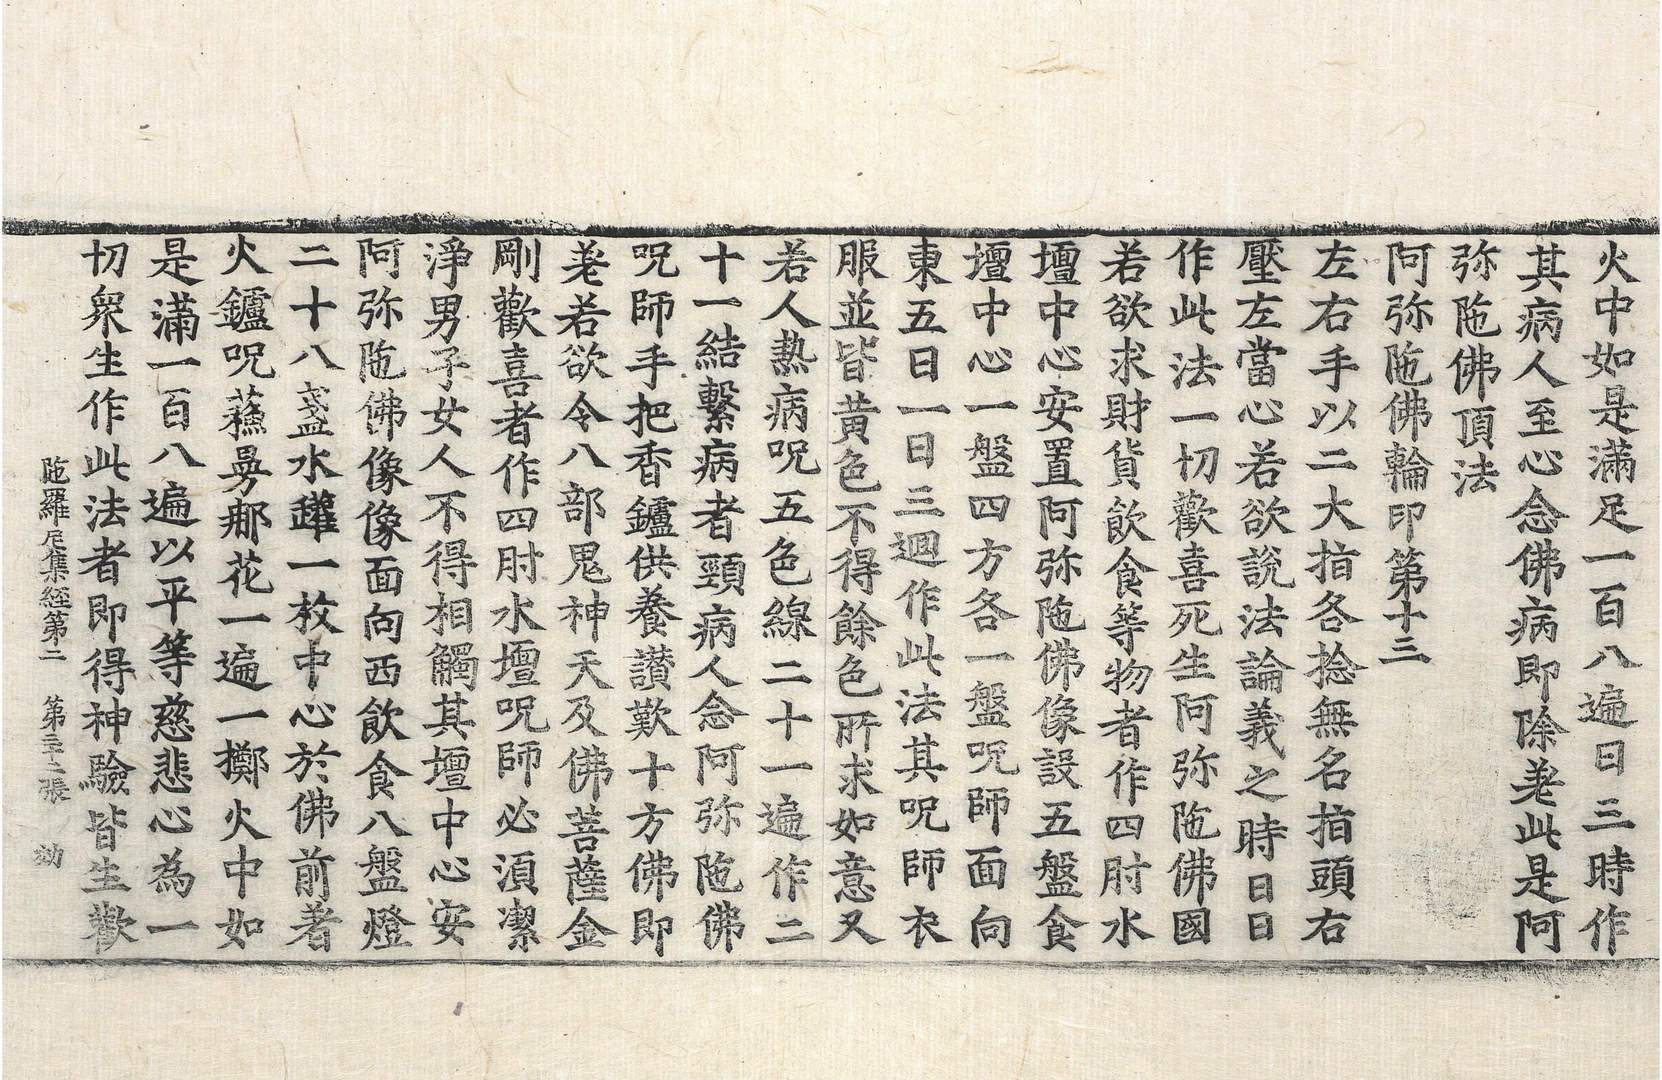 火中如是滿足一百八遍日三時作
其病人至心念佛病即除差此是阿
弥陁佛頂法
阿弥陁佛輪印第十三
左右手以二大指各捻無名指頭右
壓左當心若欲說法論義之時日日
作此法一切歡喜死生阿弥陁佛國
若欲求財貨飲食等物者作四肘水
壇中心安置阿弥陁佛像設五盤食
壇中心一盤四方各一盤呪師面向
東五日一日三迴作此法其呪師衣
服並皆黄色不得餘色所求如意又
若人熱病呪五色線二十一遍作二
十一結繫病者頸病人念阿弥陁佛
呪師手把香鑪供養讃歎十方佛即
差若欲令八部鬼神天及佛菩薩金
剛歡喜者作四肘水壇呪師必湏潔
淨男子女人不得相觸其壇中心安
阿弥陁佛像像面向西飲食八盤燈
二十八盞水罐一枚中心於佛前著
火鑪呪蘓曼那花一遍一擲火中如
是滿一百八遍以平等慈悲心為一
切衆生作此法者即得神驗皆生歡
陁羅尼集經第二 第三十二張